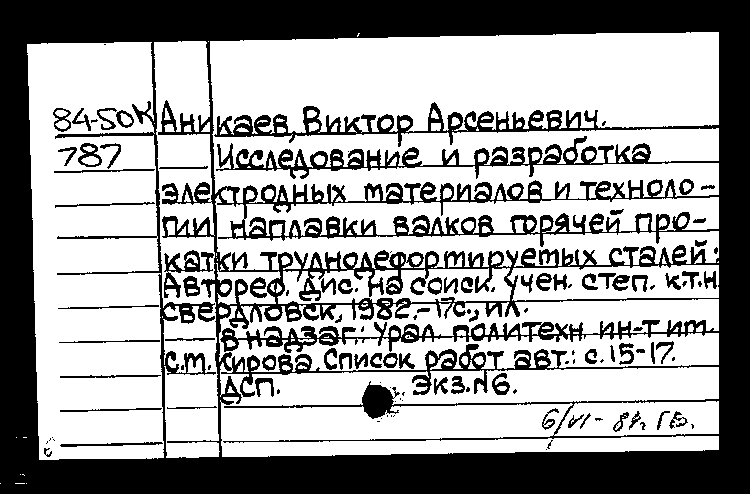 84-50К Аникаев, Виктор Арсеньевич.
787 Исследование и разработка
электродных материалов и техноло-
гии наплавки валков горячей про-
катки труднодеформируемых сталей:
Автореф. дис. на соиск. учен. степ. к.т.н
Свердловск, 1982.-17с., ил.
В надзаг.: Урал. политехн. ин-т им.
С.М. Кирова. Список работ авт.: с.15-17.
ДСП. Экз.N6.
6/VI - 84г. ГВ.